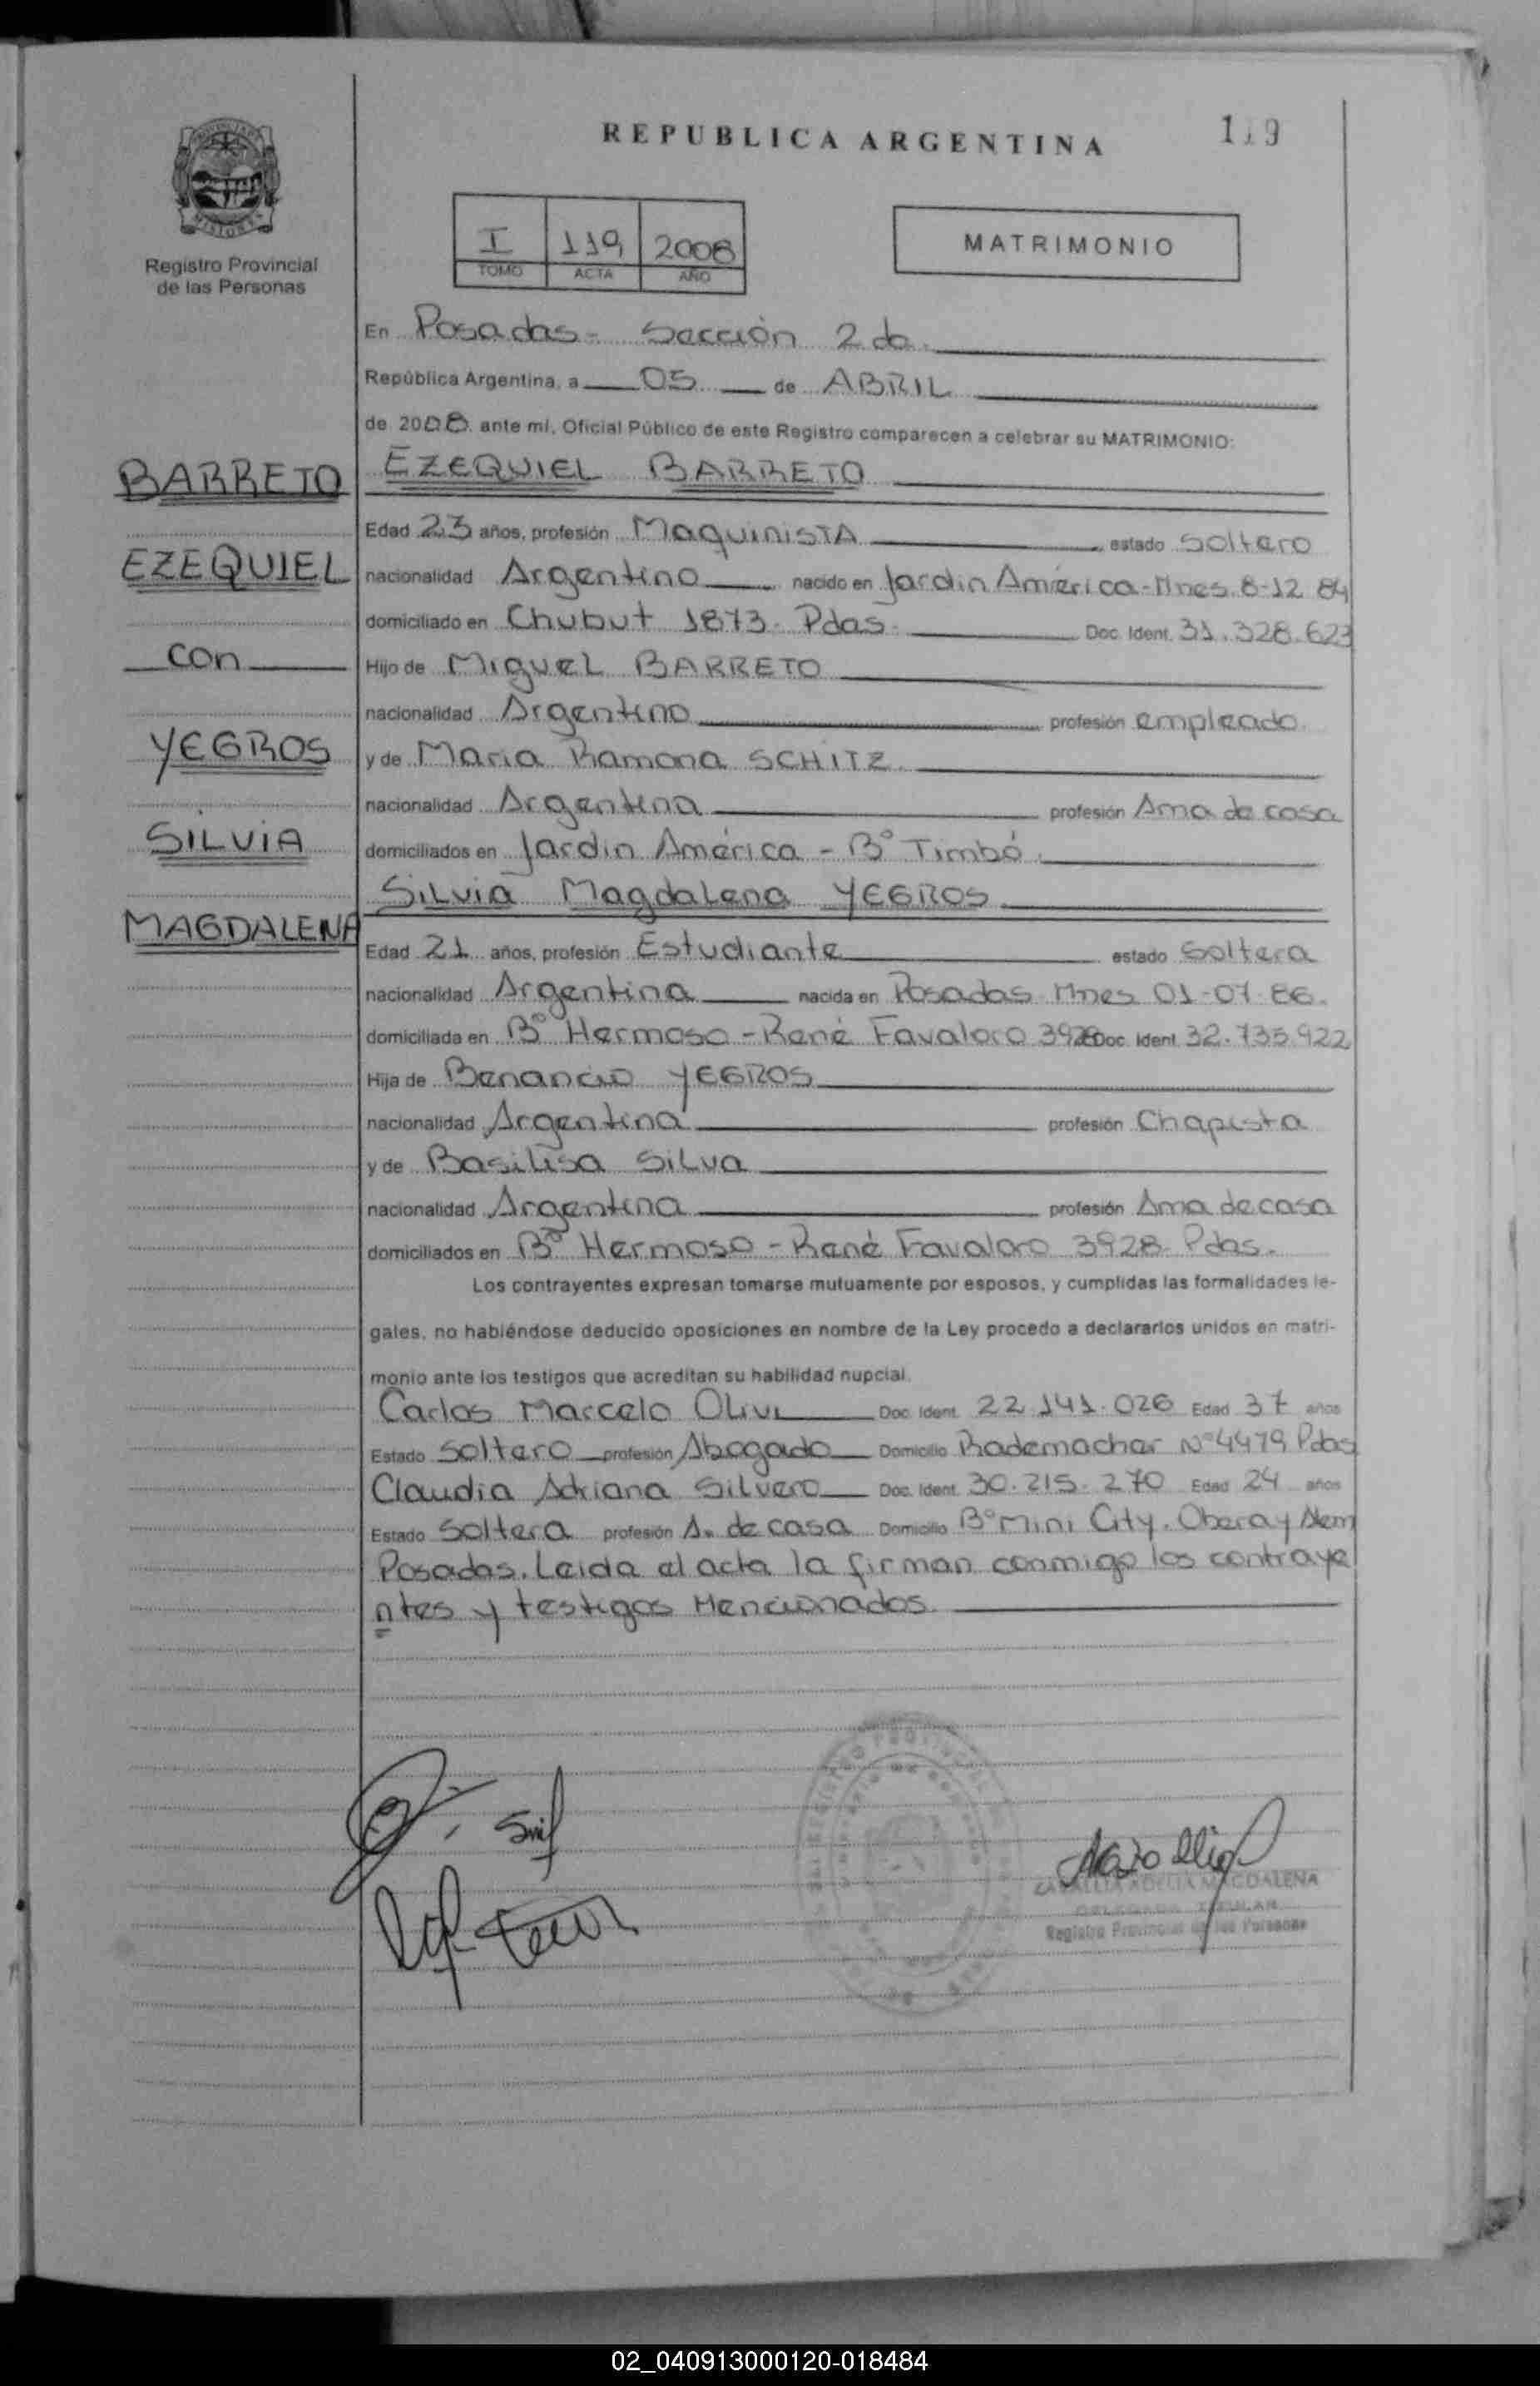 REPUBLICA ARGENTINA
119
Registro Provincial
de las Personas
I 119 2008
TOMO ACTA AÑO
MATRIMONIO
En Posadas - Sección 2da.
República Argentina, a 05 de ABRIL
de 2008 ante mí, Oficial Público de este Registro comparecen a celebrar su MATRIMONIO:
BARRETO
EZEQUIEL
con
YEGROS
SILVIA
MAGDALENA
EZEQUIEL BARRETO
Edad 23 años, profesión Maquinista estado soltero
nacionalidad Argentino nacido en Jardin América - Mnes. 8-12 84
domiciliado en Chubut 1873. Pdas. Doc. Ident. 31.328.623
Hijo de Miguel BARRETO
nacionalidad Argentino profesión empleado
y de Maria Ramona SCHITZ
nacionalidad Argentina profesión Ama de casa
domiciliados en Jardin América - Bº Timbó.
Silvia Magdalena YEGROS
Edad 21 años, profesión Estudiante estado soltera
nacionalidad Argentina nacida en Posadas Mnes 01-07-86.
domiciliada en Bº Hermoso - René Favaloro 3928 Doc. Ident. 32.735.922
Hija de Benancio YEGROS
nacionalidad Argentina profesión Chapista
y de Basilisa Silva
nacionalidad Argentina profesión Ama de casa
domiciliados en Bº Hermoso - René Favaloro 3928 Pdas.
Los contrayentes expresan tomarse mutuamente por esposos, y cumplidas las formalidades le-
gales, no habiéndose deducido oposiciones en nombre de la Ley procedo a declararlos unidos en matri-
monio ante los testigos que acreditan su habilidad nupcial.
Carlos Marcelo Olivi Doc. Ident. 22.141.026 Edad 37 años
Estado Soltero profesión Abogado Domicilio Rademacher Nº 4479 Pdas
Claudia Adriana Silvero Doc. Ident. 30.215.270 Edad 24 años
Estado Soltera profesión A. de casa Domicilio Bº Mini City. Obera y Alem
Posadas. Leida el acta la firman conmigo los contraye
ntes y testigos Mencionados.
ADELIA MAGDALENA
DELEGADA TITULAR
Registro Provincial de las Personas
02_040913000120-018484